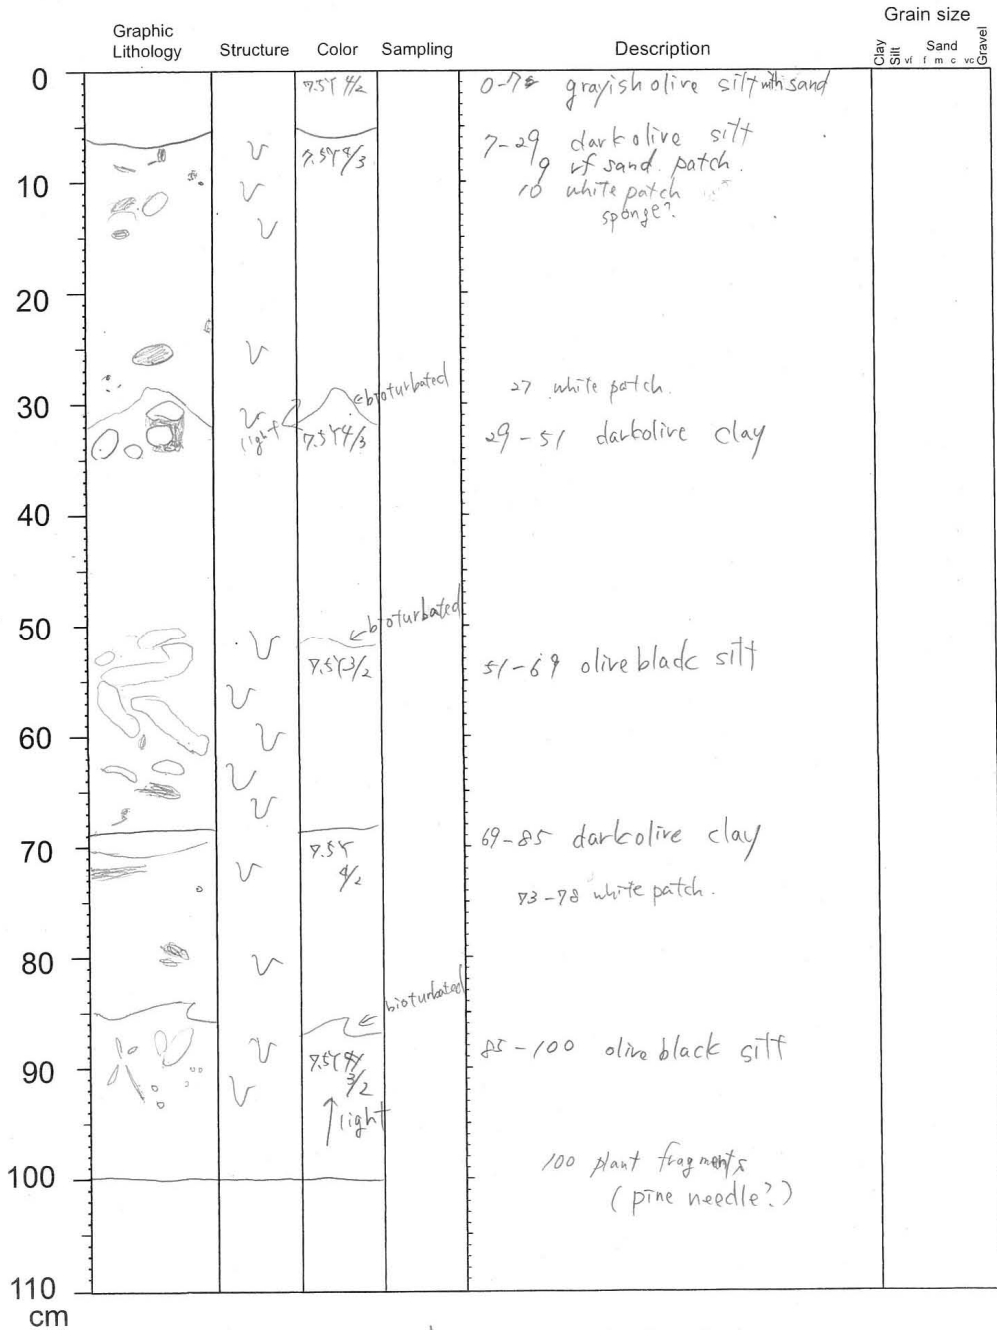 Graphic Lithology
Structure
Color
Sampling
Description
Grain size
Clay
Silt
vf
f
m
c
vc
Sand
Gravel
0
10
20
30
40
50
60
70
80
90
100
110
cm
7.5Y 4/2
7.5Y 4/3
←bioturbated
light
7.5Y4/3
←bioturbated
7.5Y3/2
7.5Y
4/2
←bioturbated
7.5Y
3/2
↑light
0-7 grayish olive silt with sand
7-29 dark olive silt
9 vf sand patch.
10 white patch
sponge?
27 white patch.
29-51 darkolive clay
51-69 olive black silt
69-85 darkolive clay
73-78 white patch.
85-100 olive black silt
100 plant fragments
(pine needle?)